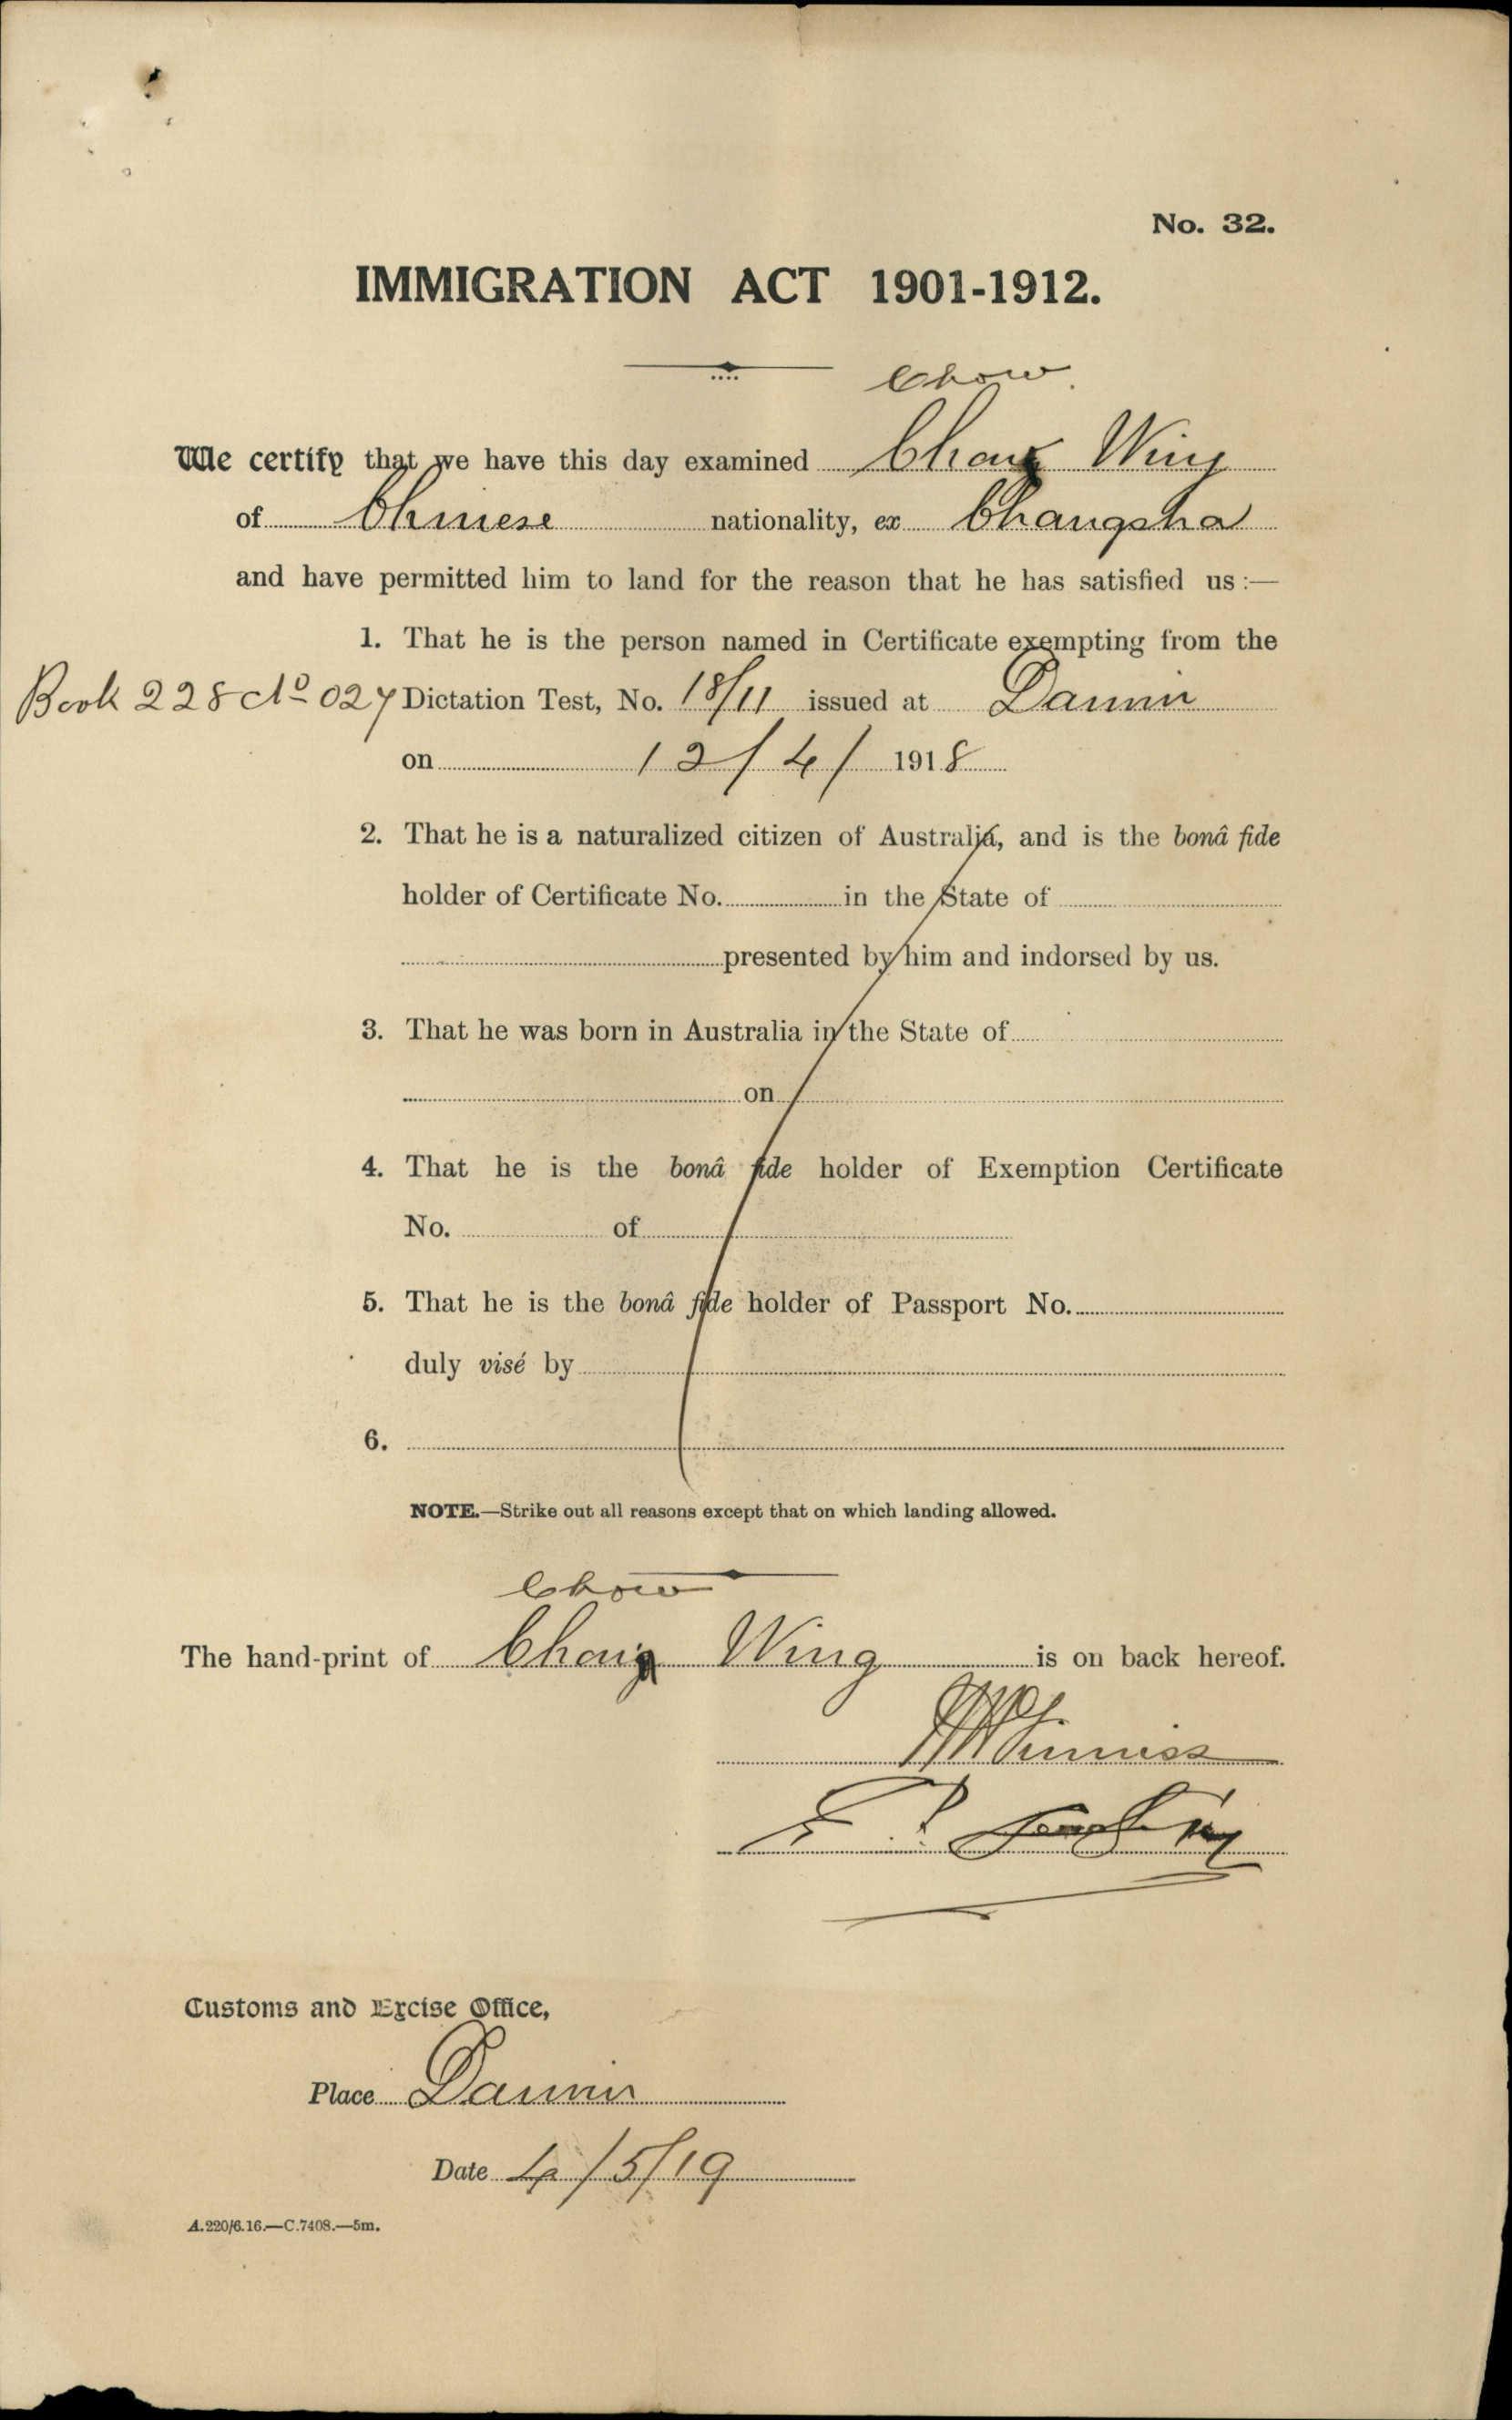 No. 32.
IMMIGRATION ACT 1901-1912.
Chow.
We certify that we have this day examined Chong Wing
of Chinese nationality, ex Changsha
and have permitted him to land for the reason that he has satisfied us :—
1. That he is the person named in Certificate exempting from the
Book 228 No 027 Dictation Test, No. 18/11 issued at Darwin
on 12/4/ 1918
2. That he is a naturalized citizen of Australia, and is the bonâ fide
holder of Certificate No. in the State of
presented by him and indorsed by us.
3. That he was born in Australia in the State of
on
4. That he is the bonâ fide holder of Exemption Certificate
No. of
5. That he is the bonâ fide holder of Passport No.
duly visé by
6.
NOTE.—Strike out all reasons except that on which landing allowed.
Chow
The hand-print of Chong Wing is on back hereof.
Customs and Excise Office,
Place Darwin
Date 4/5/19
A.220/6.16.—C.7408.—5m.